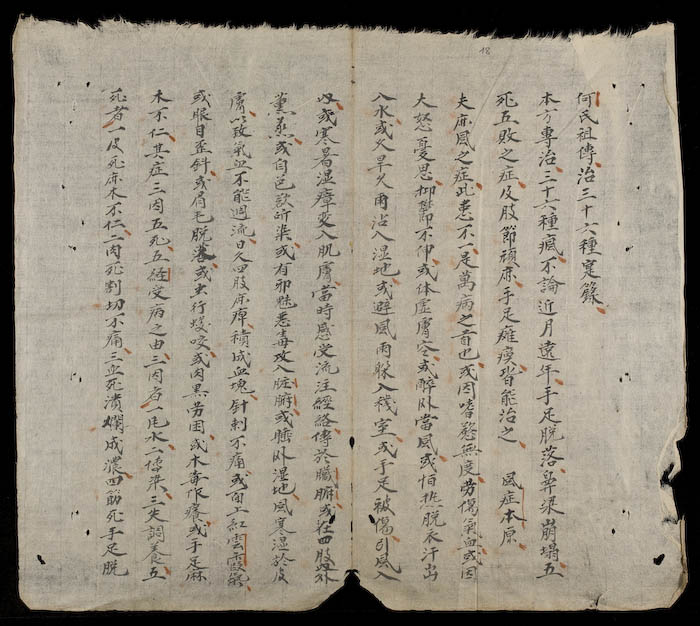 18
何氏祖傳治三十六種寔籙
本方專治三十六種瘋不論近月遠年手足脱落鼻梁崩塌五
死五敗之症及肢節頑麻手足癱瘓皆能治之 風症本原
夫麻風之症此患不一是萬病之首也或因嗜慾無度劳傷氣血或因
大怒憂思抑欝不伸或体虚膚空或醉卧當風或怕热脱衣汗出
入水或久旱久雨沾入湿地或避風雨躲入殘室或手足被傷引風入
或寒暑湿瘴变入肌膚當時感受流注經絡傳於臟腑或在四肢外
薰蒸或自色欲所染或有邪魅悪毒攻入脏腑或睡卧湿地風寔湿於皮
膚以致氣血不能週流日久四肢麻痺積成血塊針刺不痛或面上紅雲
或眼目歪斜或眉毛脱落或虫行蟻咬或肉黑劳困或木毒作癢或手足麻
木不仁其症三因五死五経受病之由三因者一風水二傳準三失調養五
死者一皮死麻木不仁二肉死割切不痛三血死潰爛成濃四筋死手足脱